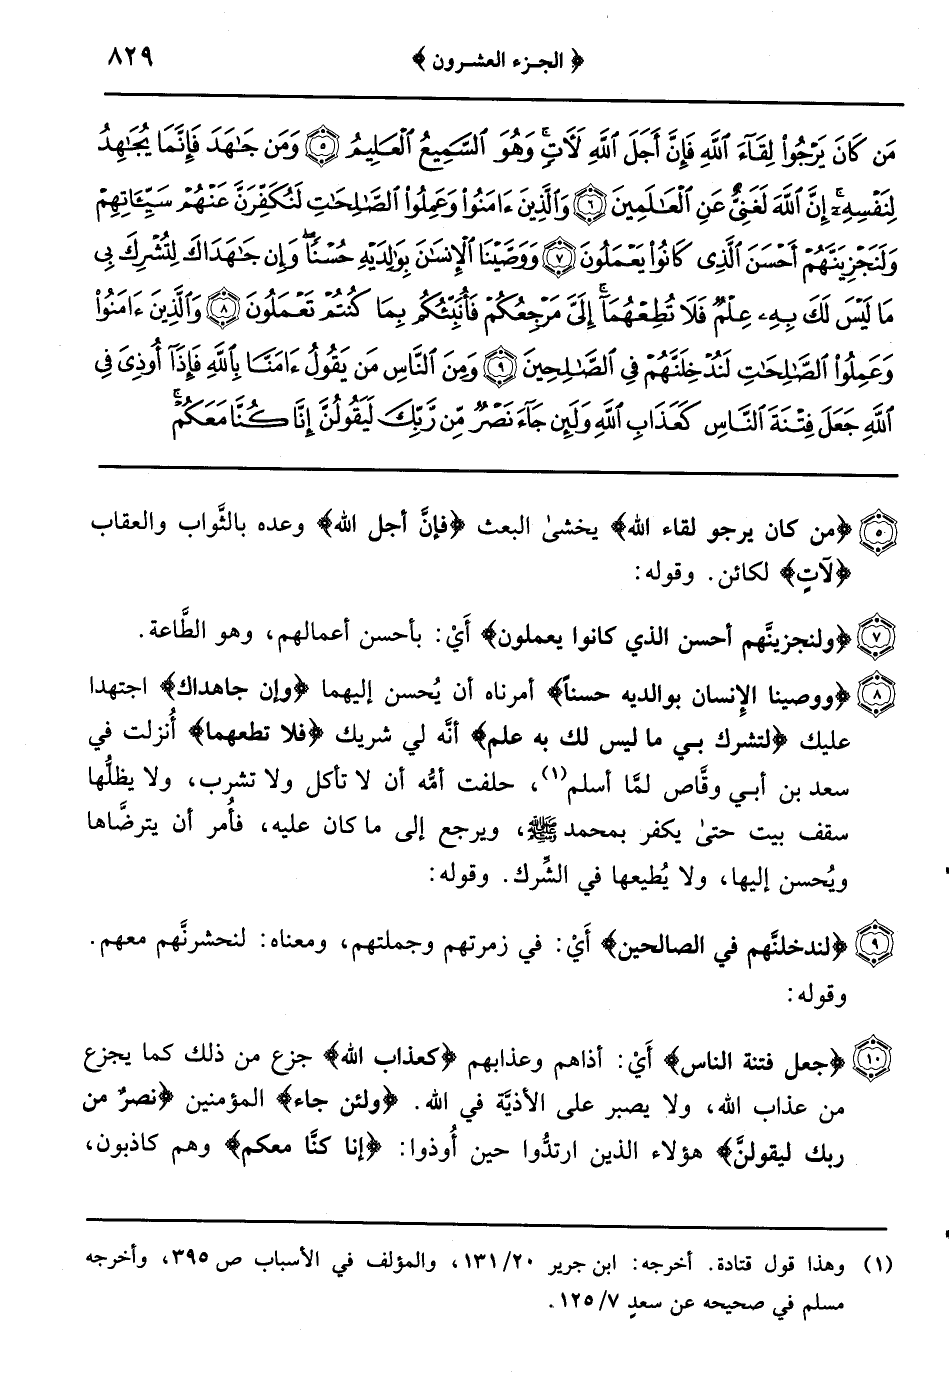 ﴿ الجزء العشرون ﴾ ٨٢٩
مَن كَانَ يَرْجُوا۟ لِقَآءَ ٱللَّهِ فَإِنَّ أَجَلَ ٱللَّهِ لَـَٔاتٍ ۚ وَهُوَ ٱلسَّمِيعُ ٱلْعَلِيمُ ٥ وَمَن جَـٰهَدَ فَإِنَّمَا يُجَـٰهِدُ
لِنَفْسِهِۦٓ ۚ إِنَّ ٱللَّهَ لَغَنِىٌّ عَنِ ٱلْعَـٰلَمِينَ ٦ وَٱلَّذِينَ ءَامَنُوا۟ وَعَمِلُوا۟ ٱلصَّـٰلِحَـٰتِ لَنُكَفِّرَنَّ عَنْهُمْ سَيِّـَٔاتِهِمْ
وَلَنَجْزِيَنَّهُمْ أَحْسَنَ ٱلَّذِى كَانُوا۟ يَعْمَلُونَ ٧ وَوَصَّيْنَا ٱلْإِنسَـٰنَ بِوَٰلِدَيْهِ حُسْنًا ۖ وَإِن جَـٰهَدَاكَ لِتُشْرِكَ بِى
مَا لَيْسَ لَكَ بِهِۦ عِلْمٌ فَلَا تُطِعْهُمَآ ۚ إِلَىَّ مَرْجِعُكُمْ فَأُنَبِّئُكُم بِمَا كُنتُمْ تَعْمَلُونَ ٨ وَٱلَّذِينَ ءَامَنُوا۟
وَعَمِلُوا۟ ٱلصَّـٰلِحَـٰتِ لَنُدْخِلَنَّهُمْ فِى ٱلصَّـٰلِحِينَ ٩ وَمِنَ ٱلنَّاسِ مَن يَقُولُ ءَامَنَّا بِٱللَّهِ فَإِذَآ أُوذِىَ فِى
ٱللَّهِ جَعَلَ فِتْنَةَ ٱلنَّاسِ كَعَذَابِ ٱللَّهِ وَلَئِن جَآءَ نَصْرٌ مِّن رَّبِّكَ لَيَقُولُنَّ إِنَّا كُنَّا مَعَكُمْ ۚ
٥ ﴿من كان يرجو لقاء الله﴾ يخشىٰ البعث ﴿فإنَّ أجل الله﴾ وعده بالثَّواب والعقاب
﴿لآتٍ﴾ لكائن. وقوله:
٧ ﴿ولنجزينَّهم أحسن الذي كانوا يعملون﴾ أَيْ: بأحسن أعمالهم، وهو الطَّاعة.
٨ ﴿ووصينا الإِنسان بوالديه حسناً﴾ أمرناه أن يُحسن إليهما ﴿وإن جاهداك﴾ اجتهدا
عليك ﴿لتشرك بي ما ليس لك به علم﴾ أنَّه لي شريك ﴿فلا تطعهما﴾ أُنزلت في
سعد بن أبي وقَّاص لمَّا أسلم(١)، حلفت أمُّه أن لا تأكل ولا تشرب، ولا يظلُّها
سقف بيت حتىٰ يكفر بمحمد ﷺ، ويرجع إلى ما كان عليه، فأُمر أن يترضَّاها
ويُحسن إليها، ولا يُطيعها في الشِّرك. وقوله:
٩ ﴿لندخلنَّهم في الصالحين﴾ أَيْ: في زمرتهم وجملتهم، ومعناه: لنحشرنَّهم معهم.
وقوله:
١٠ ﴿جعل فتنة الناس﴾ أَيْ: أذاهم وعذابهم ﴿كعذاب الله﴾ جزع من ذلك كما يجزع
من عذاب الله، ولا يصبر على الأذيَّة في الله. ﴿ولئن جاء﴾ المؤمنين ﴿نصرٌ من
ربك ليقولنَّ﴾ هؤلاء الذين ارتدُّوا حين أُوذوا: ﴿إنا كنَّا معكم﴾ وهم كاذبون،
(١) وهذا قول قتادة. أخرجه: ابن جرير ٢٠/١٣١، والمؤلف في الأسباب ص ٣٩٥، وأخرجه
مسلم في صحيحه عن سعدٍ ٧/١٢٥.